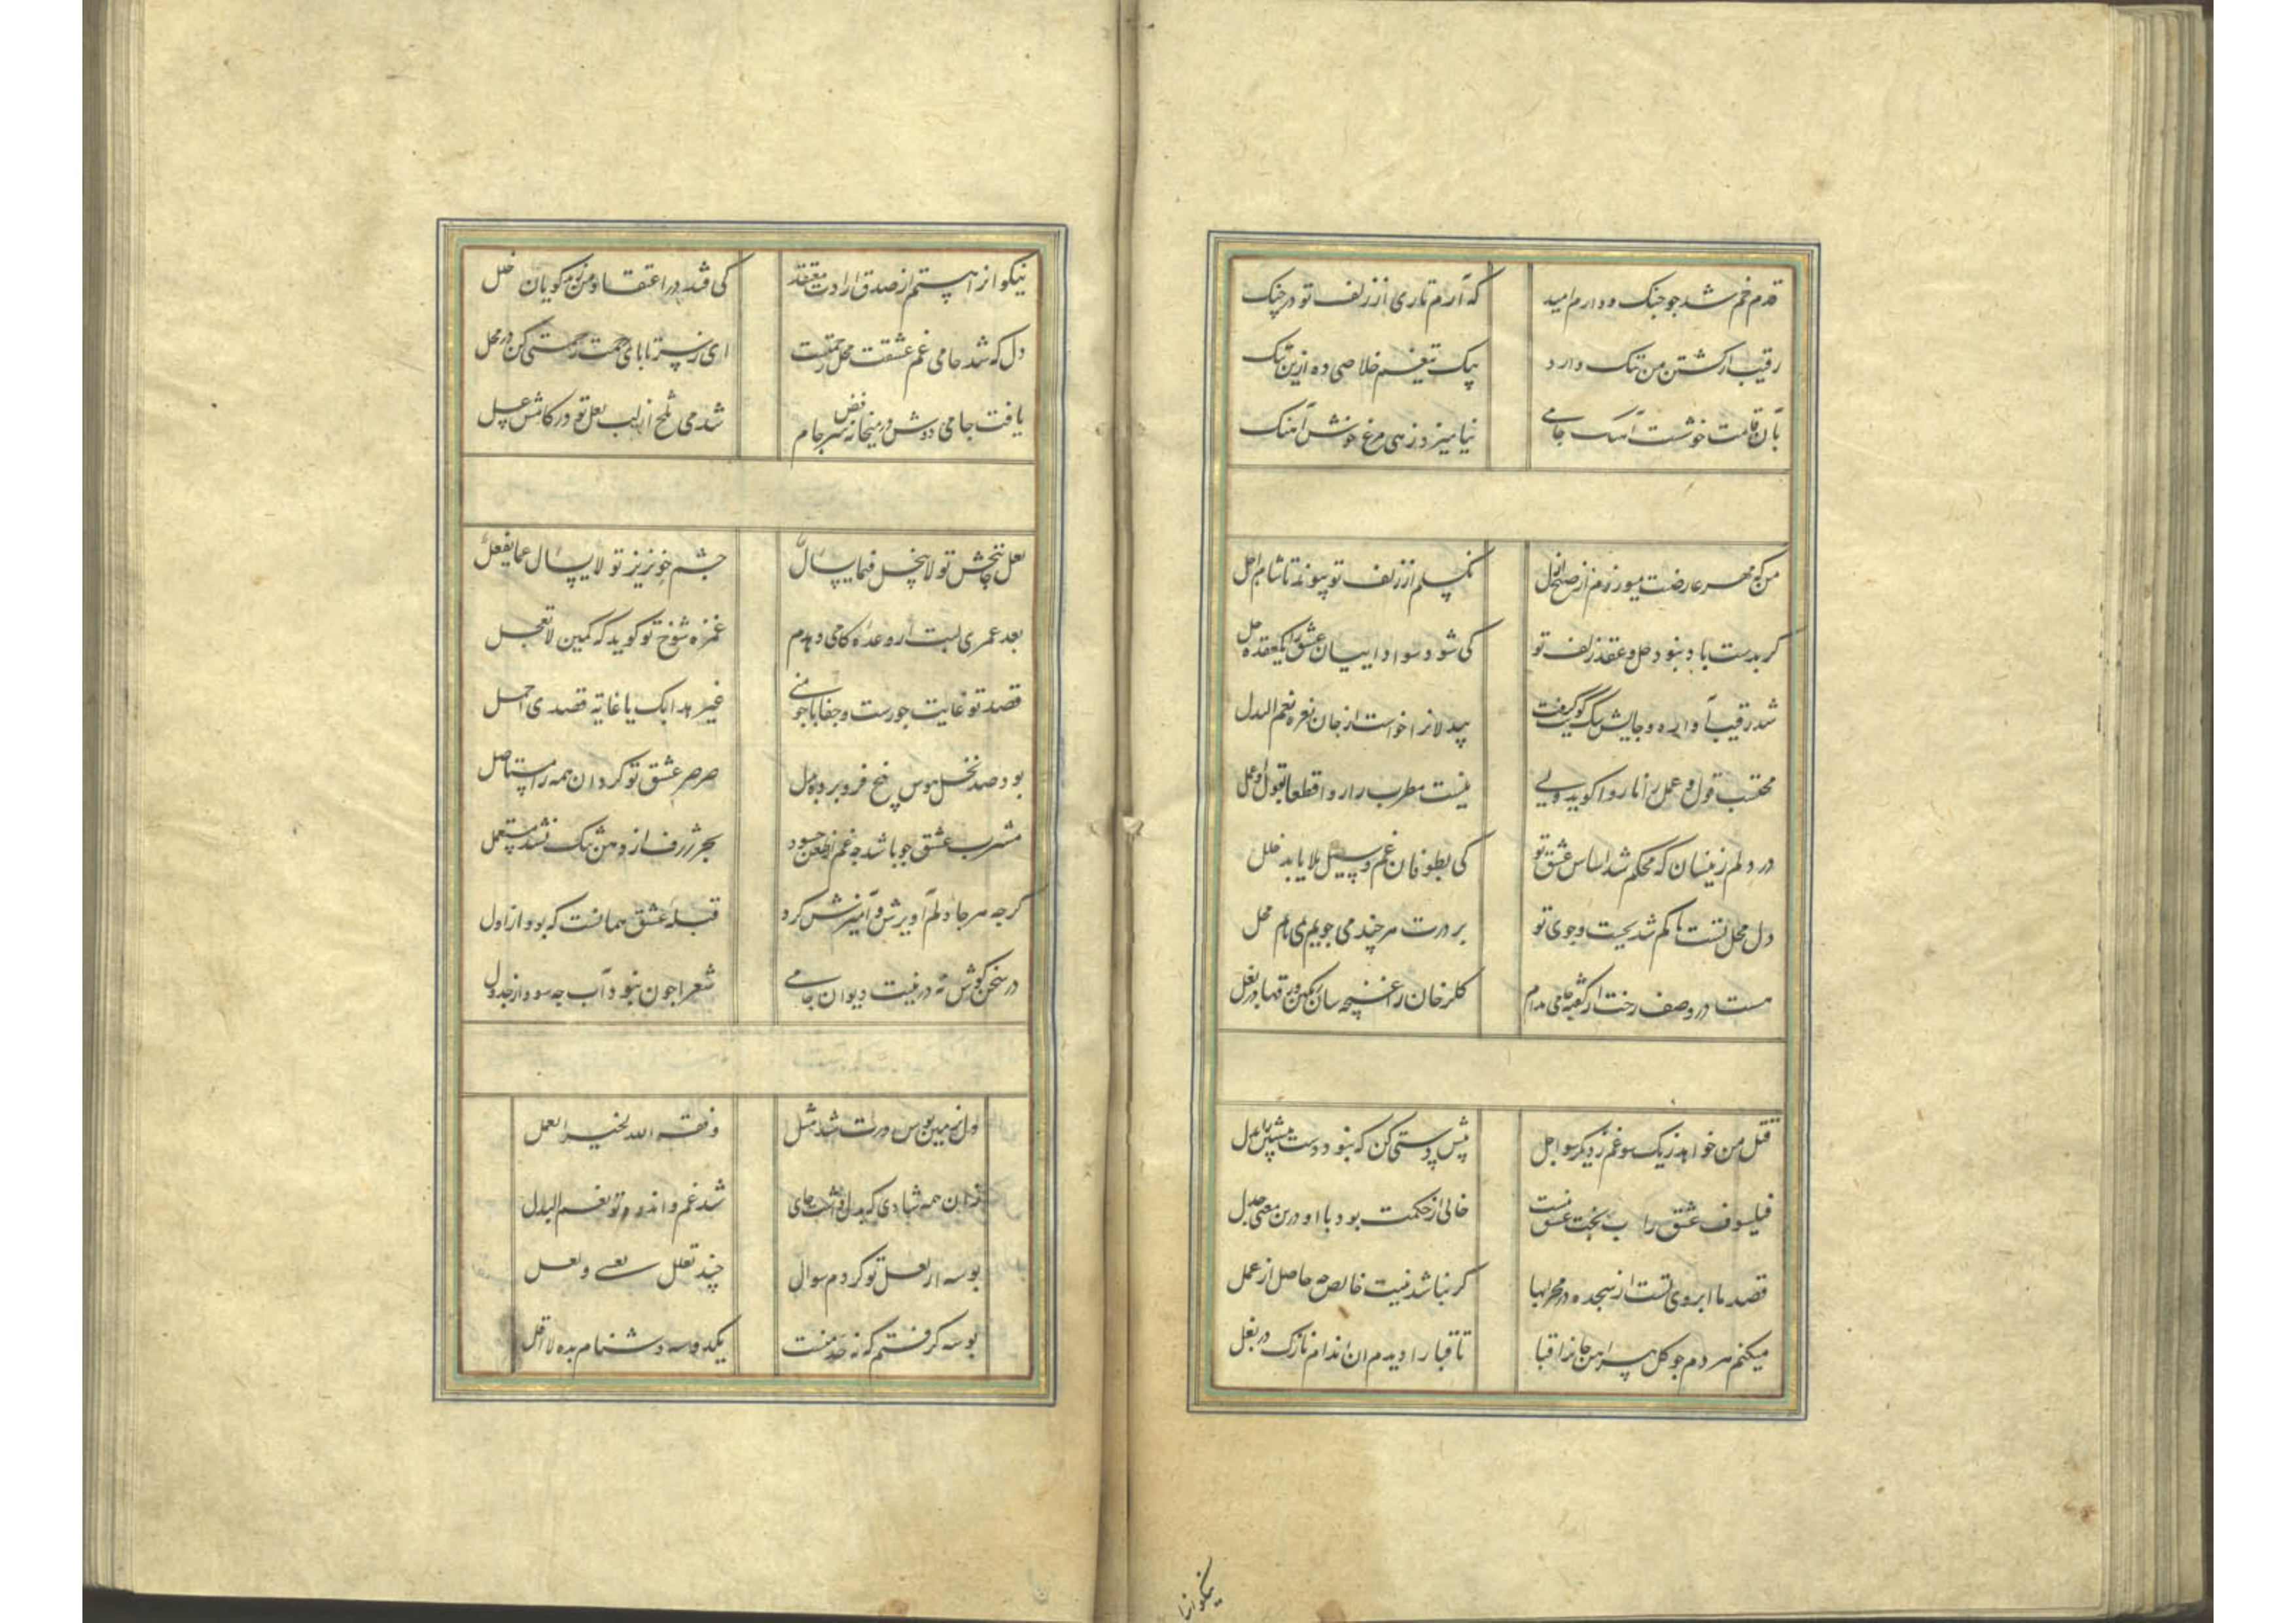 قدم خم شد جو جنک و دارم امید که آرم تاری از زلف تو در جنک
رقیب از کشتن من ننک دارد بیک تیغم خلاصی ده ازین ننک
بآن قامت خوشست آهنک جامی نیامیزد زهی مرغ خوش آهنک
من که مهر عارضت میورزم از صبح ازل نکسلم از زلف تو پیوند تا شام اجل
کر بدست باد نبود حل و عقد زلف تو کی شود سوداییان عشق را یکعقده حل
شد رقیب آواره و جایش سک کویت کرفت بیدلانرا خواست از جان نعره نعم البدل
محتسب قول و عمل را ناروا کوید ولی نیست مطرب را روا قطعا بقول او عمل
در دلم زینسان که محکم شد اساس عشق تو کی بطوفان غم و سیل بلا یابد خلل
دل محل تست تا کم شد بجست و جوی تو بر درت هر چند می جویم نمی یابم محل
هست در وصف رخت از کفته جامی مدام کلرخان را غنچه سان رنکین ورقها در بغل
قتل من خواهد ز یک سو غم ز دیکر سو اجل پیش دستی کن که نبود دست پیشین را بدل
فیلسوف عشق را بحث عشق تست خالی از حکمت بود با او درین معنی جدل
قصد ما ابروی تست از سجده در محرابها کر نباشد نیت خالص چه حاصل از عمل
میکنم هر دم جو کل پیراهن جانرا قبا تا قبا را دیدم ان اندام نازک در بغل
نیکوانرا
نیکوانرا هستم از صدق ارادت معتقد کی فتد در اعتقاد من ز بدکویان خلل
دل که شد جامی غم عشقت محل رحمتست ای ز سر تا پای رحمت رحمتی کن در محل
یافت جامی دوش در میخانه فیض سر جام شد می تلخ از لب لعل تو در کامش عسل
لعل جانبخش تو لا یبخل فیما یسأل جشم خونریز تو لا یسأل عما یفعل
بعد عمری لبت ار وعده کامی دهدم غمزه شوخ تو کوید که کمین لا تعجل
قصد تو غایت جورست و جفا با جو منی غیر هذا بک یا غایة قصدی اجمل
بود صد نخل هوس بیخ فرو برده بدل صرصر عشق تو کرد ان همه را مستأصل
مشرب عشق جو باشد جه غم از طعن حسود بحر ژرف از دهن سک نشد مستعمل
کرجه هر جا دلم آویزش و آمیزش کرد قبله عشق همانست که بود از اول
در سخن کوش نه در زینت دیوان جامی شعر را جون نبود آب جه سود از جدول
دل بزمین بوس درت شد مثل وفقه الله لخیر العمل
زان همه شادی که بدل داشت جای شد غم و اندوه تو نعم البدل
بوسه از لعل تو کردم سوال چند تعلل بعسی و لعل
بوسه کرفتم که نه حد منست یکدوسه دشنام بده لا اقل